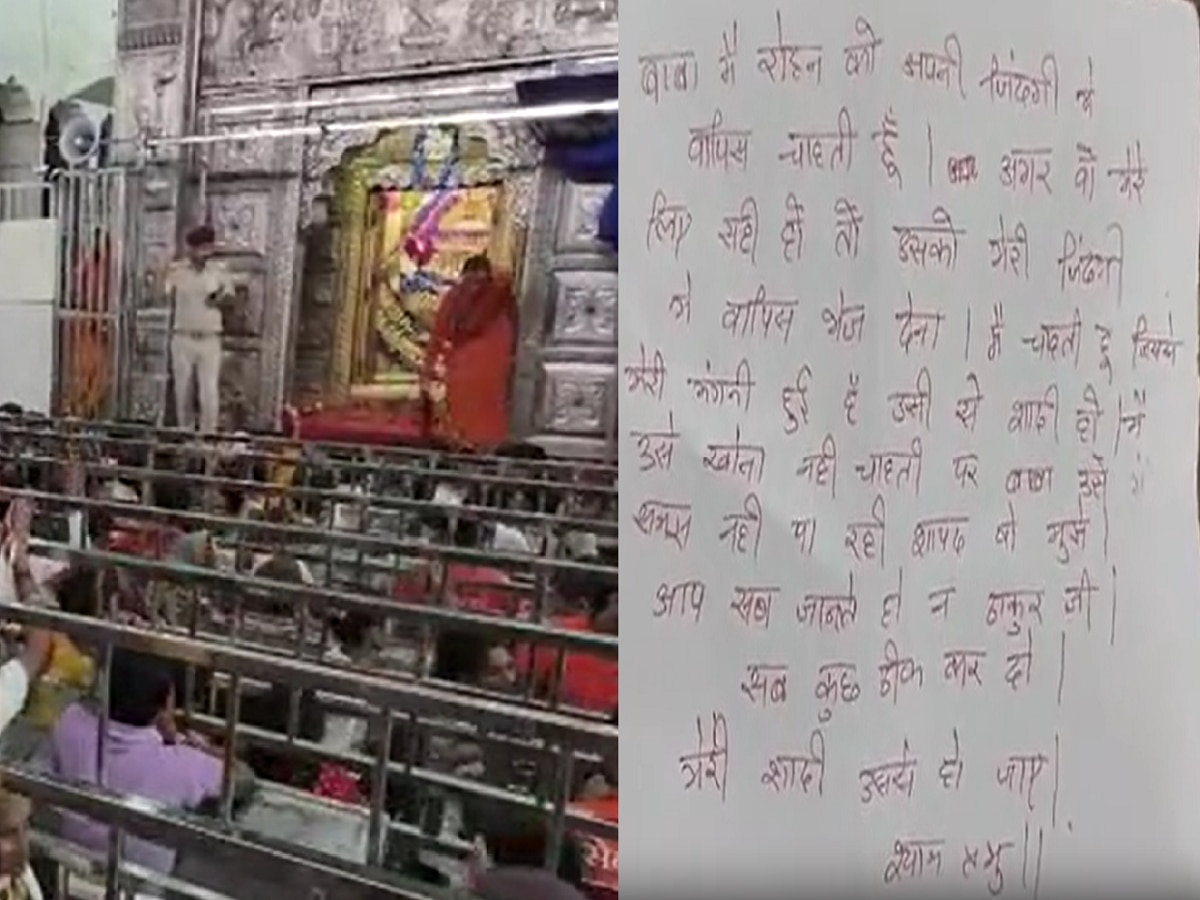 बाबा मै रोहन को अपनी जिंदगी मे
वापिस चाहती हूँ । अगर वो मेरे
लिए सही हो तो उसको मेरी जिंदगी
मे वापिस भेज देना । मै चाहती हूँ जिससे
मेरी मंगनी हुई है उसी से शादी हो । मै
उसे खोना नही चाहती पर बाबा उसे मै
समझ नही पा रही शायद वो मुझे ।
आप सब जानते हो न ठाकुर जी ।
सब कुछ ठीक कर दो ।
मेरी शादी उससे हो जाए ।
श्याम प्रभु ।।